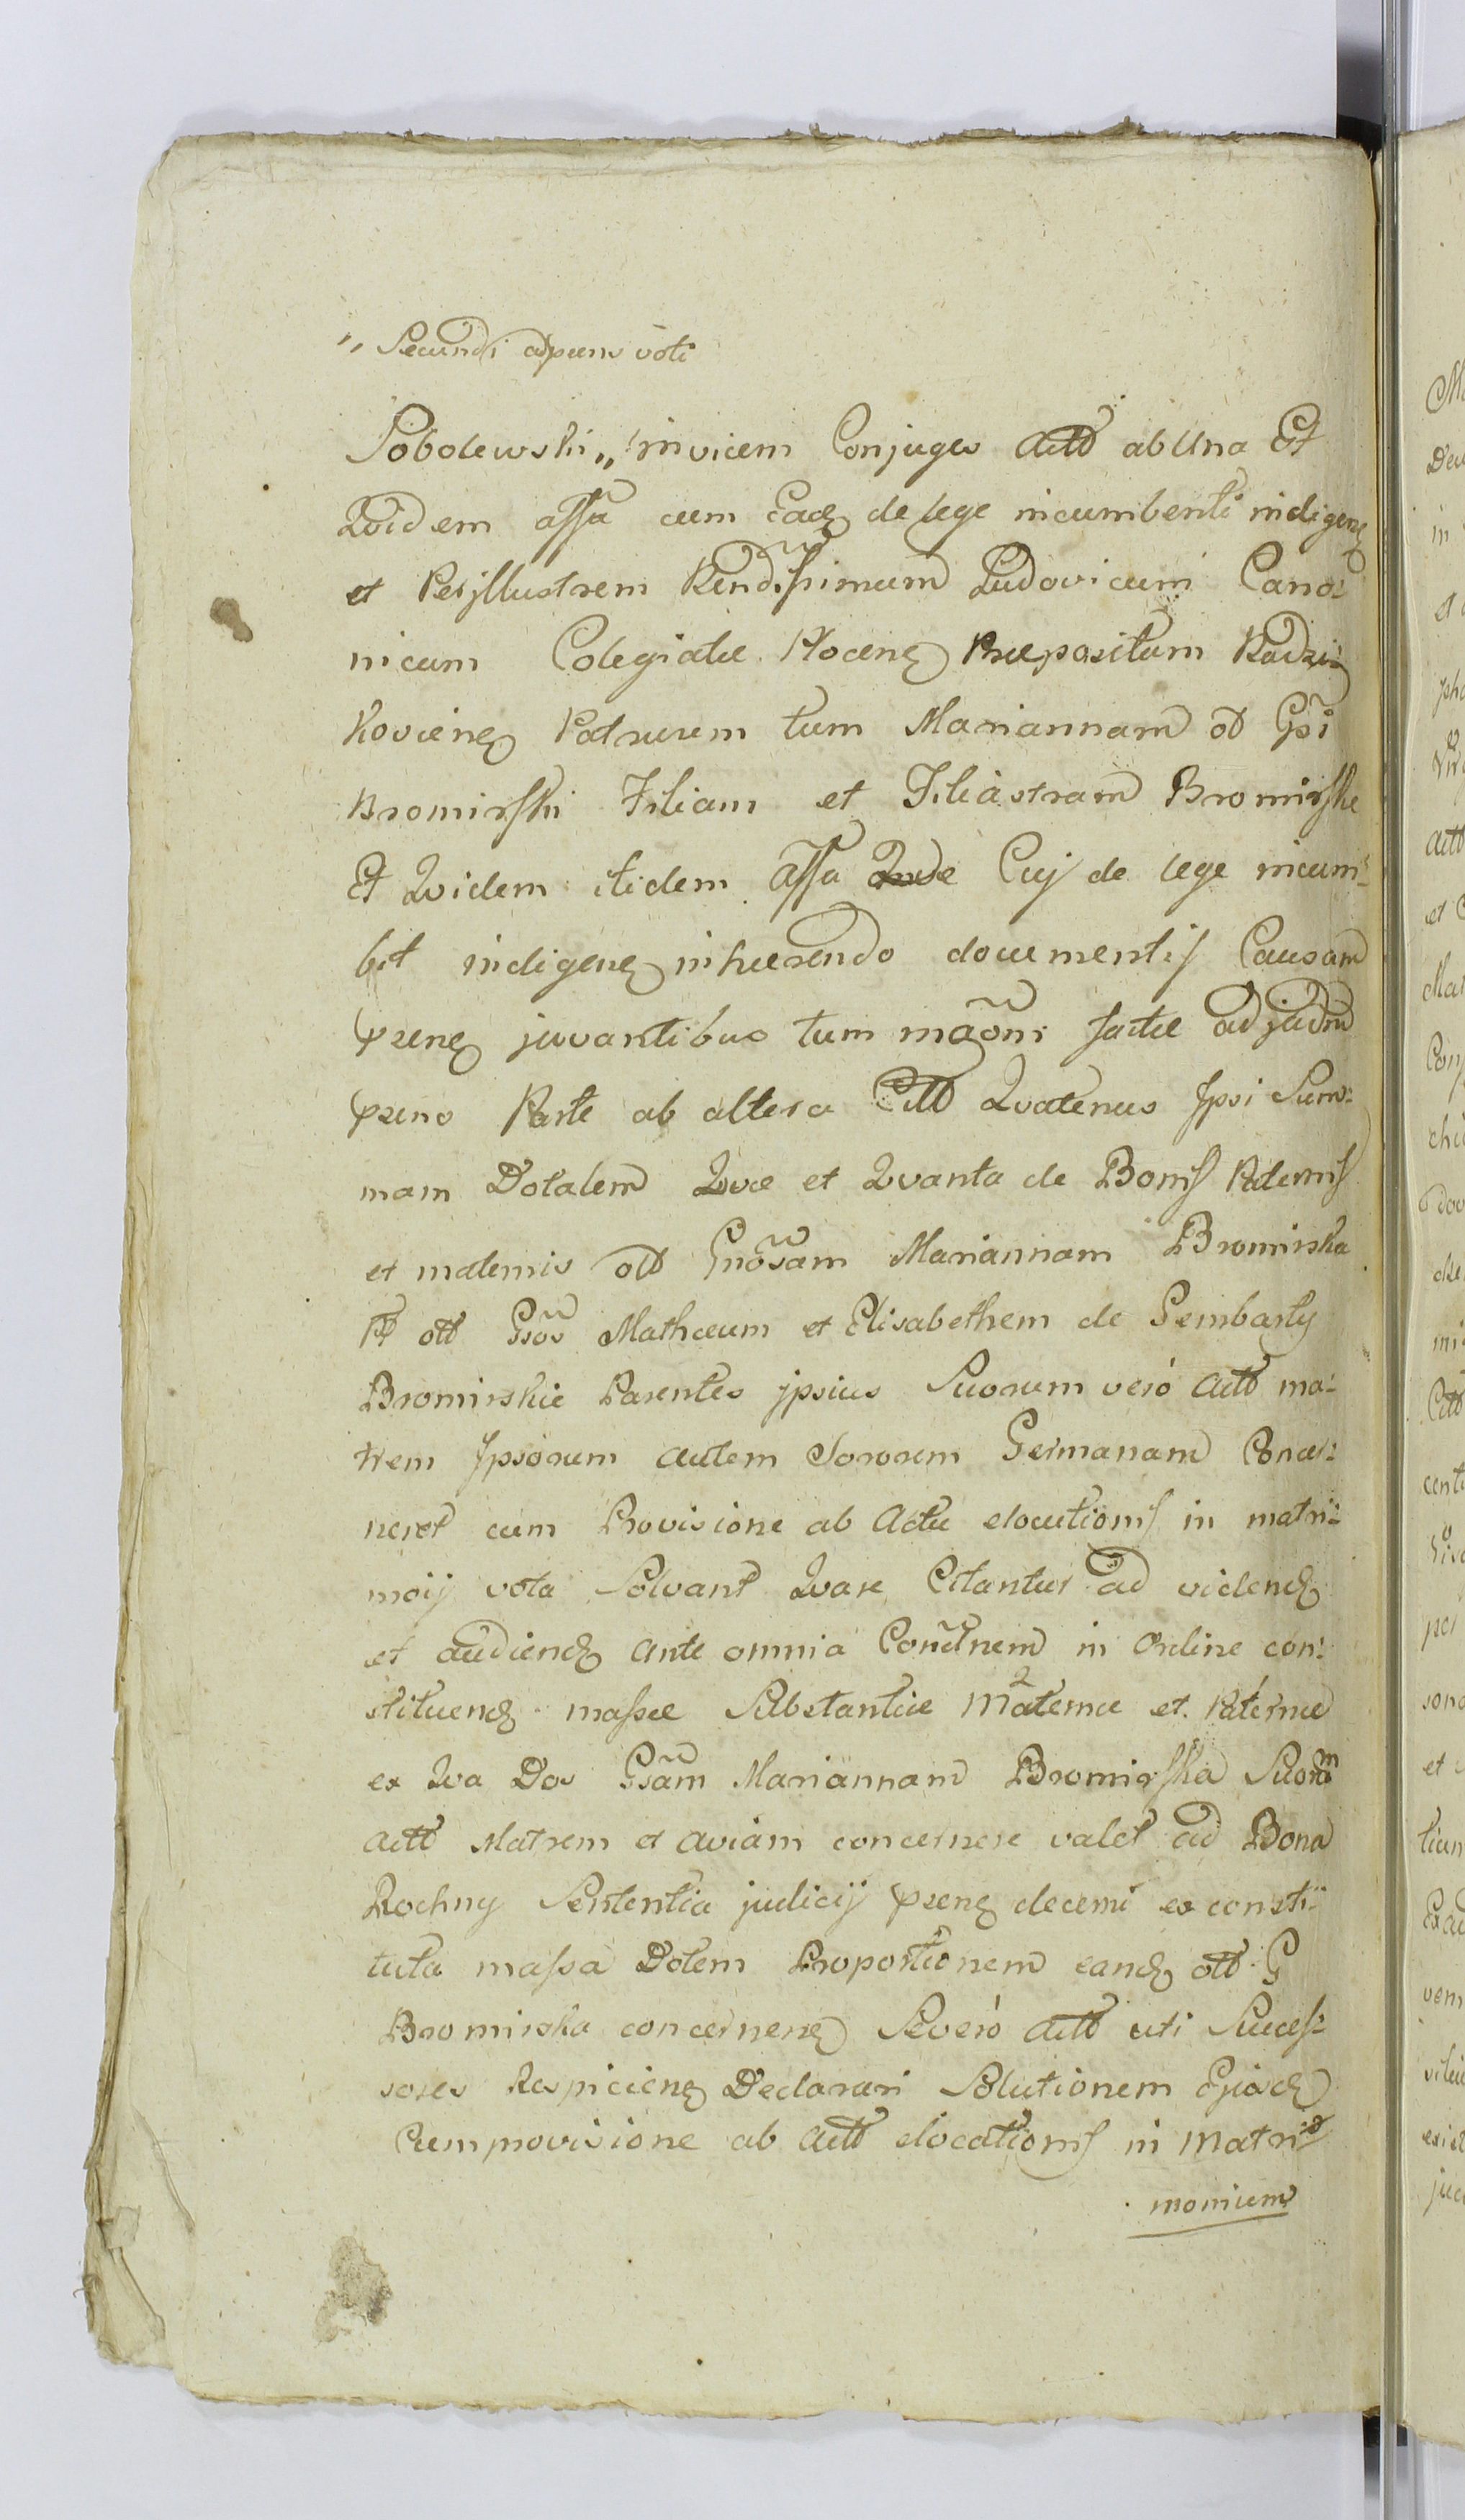 „ Secundi adpraens voti
Sobolewski „ invicem Conjuges Actt ab Una Et
Qvidem assa cum Eadę de lege incumbenti indigenę
et Perjllustrem Rendissimum Ludovicum Cano:
nicum Colegiatæ Plocenę Præpositum Radzi:
kovienę Patruum tum Mariannam ot Gsi
Bromirski Filiam et Filiastram Bromirskę
Et Qvidem itidem assa Cuj de lege incum:
bit indigenę inhærendo documentis Causam
prænę juvantibus tum mgõni factæ ad judm
præns Parte ab altera Citt Qvatenus Jpsi Sum:
mam Dotalem Qvæ et Qvanta de Bonis Paternis
et maternis ott Gnõsam Mariannam Bromirska
ott Gsos Mathæum et Elisabethem de Gembarty
Bromirskie Parentes jpsius Suorum veró Actt ma:
trem Jpsorum autem Sororem Germanam Concer:
neret cum Provisione ab Actu elocutionis in matri:
moij vota Solvant Qvare Citantur ad videndę
et audiendę ante omnia Condnem in Ordine con:
stituendę massæ Substantiæ Maternæ et Paternæ
ex Qva Dos Gsam Mariannam Bromirska Suorm
actt Matrem et aviam concernere valet ad Bona
Rochny Sententia judicij prænę decerni ex consti:
tuta massa Dotem Proportionem eandę ott G
Bromirska concernenę Se veró Actt uti Succes:
sores Respicienę Declarari Solutionem Ejusdę
Cum provisione ab Actt elocationis in Matri:
monium